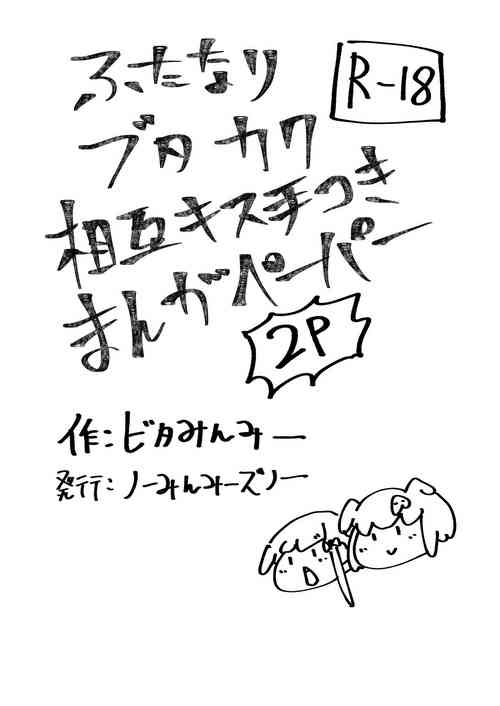 ふたなり
R-18
ブタカク
相互キス手つき
まんがペーパー
2P
作:ビタみんみー
発行:ノーみんみーズノー